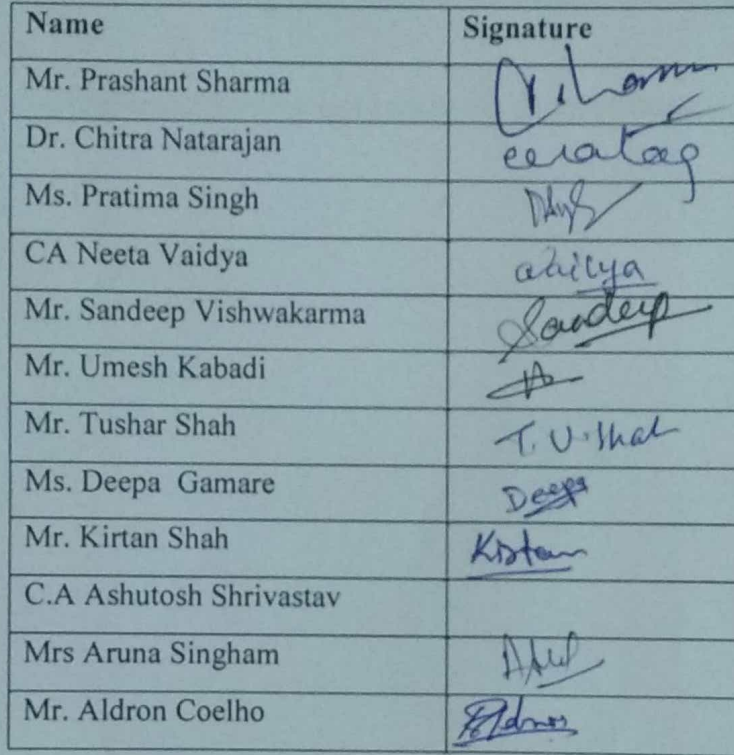 Name Signature
Mr. Prashant Sharma
Dr. Chitra Natarajan
Ms. Pratima Singh
CA Neeta Vaidya
Mr. Sandeep Vishwakarma Sandeep
Mr. Umesh Kabadi
Mr. Tushar Shah T. V. Shah
Ms. Deepa Gamare Deepa
Mr. Kirtan Shah Kirtan
C.A Ashutosh Shrivastav
Mrs Aruna Singham
Mr. Aldron Coelho